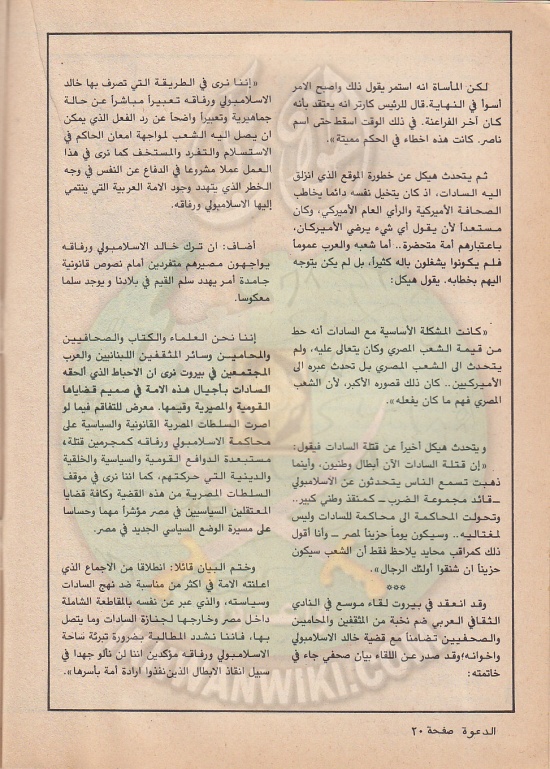 لكن المأساة انه استمر يقول ذلك واصبح الامر
أسوأ في النهاية. قال للرئيس كارتر انه يعتقد بأنه
كان أخر الفراعنة. في ذلك الوقت اسقط حتى اسم
ناصر. كانت هذه اخطاء في الحكم مميتة».
ثم يتحدث هيكل عن خطورة الموقع الذي انزلق
اليه السادات، اذ كان يتخيل نفسه دائما يخاطب
الصحافة الأميركية والرأي العام الأميركي، وكان
مستعداً لأن يقول أي شيء يرضي الأميركان،
باعتبارهم أمة متحضرة.. أما شعبه والعرب عموماً
فلم يكونوا يشغلون باله كثيراً، بل لم يكن يتوجه
اليهم بخطابه. يقول هيكل:
«كانت المشكلة الأساسية مع السادات أنه حط
من قيمة الشعب المصري وكان يتعالى عليه، ولم
يتحدث الى الشعب المصري بل تحدث عبره الى
الأميركيين.. كان ذلك قصوره الأكبر، لأن الشعب
المصري فهم ما كان يفعله»
ويتحدث هيكل أخيراً عن قتلة السادات فيقول:
«إن قتلة السادات الآن أبطال وطنيون، وأينما
ذهبت تسمع الناس يتحدثون عن الاسلامبولي
ــ قائد مجموعة الضرب ــ كمنقذ وطني كبير..
وتحولت المحاكمة الى محاكمة للسادات وليس
لمغتاليه.. وسيكون يوماً حزيناً لمصر ــ وأنا أقول
ذلك كمراقب محايد يلاحظ فقط أن الشعب سيكون
حزيناً ان شنقوا أولئك الرجال».
***
وقد انعقد في بيروت لقاء موسع في النادي
الثقافي العربي ضم نخبة من المثقفين والمحاميين
والصحفيين تضامناً مع قضية خالد الاسلامبولي
واخوانه؛ وقد صدر عن اللقاء بيان صحفي جاء في
خاتمته:
«إننا نرى في الطريقة التي تصرف بها خالد
الاسلامبولي ورفاقه تعبيراً مباشراً عن حالة
جماهيرية وتعبيراً واضحاً عن رد الفعل الذي يمكن
ان يصل اليه الشعب لمواجهة امعان الحاكم في
الاستسلام والتفرد والمستخف كما نرى في هذا
العمل عملا مشروعا في الدفاع عن النفس في وجه
الخطر الذي يتهدد وجود الامة العربية التي ينتمي
إليها الاسلامبولي ورفاقه.
أضاف: ان ترك خالد الاسلامبولي ورفاقه
يواجهون مصيرهم متفردين أمام نصوص قانونية
جامدة أمر يهدد سلم القيم في بلادنا ويوجد سلما
معكوسا.
إننا نحن العلماء والكتاب والصحافيين
والمحاميين وسائر المثقفين اللبنانيين والعرب
المجتمعين في بيروت نرى ان الاحباط الذي ألحقه
السادات بأجيال هذه الامة في صميم قضاياها
القومية والمصيرية وقيمها. معرض للتفاقم فيما لو
اصرت السلطات المصرية القانونية والسياسية على
محاكمة الاسلامبولي ورفاقه كمجرمين قتلة،
مستبعدة الدوافع القومية والسياسية والخلقية
والدينية التي حركتهم، كما اننا نرى في موقف
السلطات المصرية من هذه القضية وكافة قضايا
المعتقلين السياسيين في مصر مؤشراً مهما وحساسا
على مسيرة الوضع السياسي الجديد في مصر.
وختم البيان قائلا: انطلاقا من الاجماع الذي
اعلنته الامة في اكثر من مناسبة ضد نهج السادات
وسياسته، والذي عبر عن نفسه بالمقاطعة الشاملة
داخل مصر وخارجها لجنازة السادات وما يتصل
بها، فاننا نشدد المطالبة بضرورة تبرئة ساحة
الاسلامبولي ورفاقه مؤكدين اننا لن نألو جهدا في
سبيل انقاذ الابطال الذين نفذوا ارادة أمة بأسرها».
الدعوة صفحة ٢٠